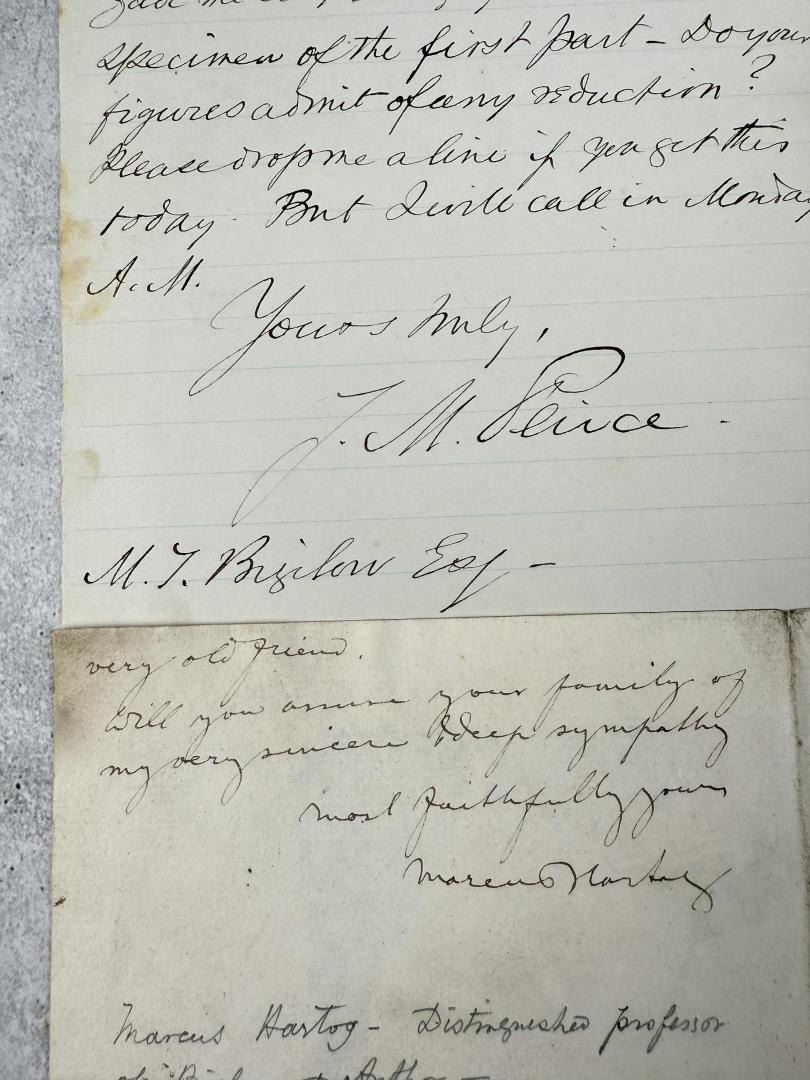 specimen of the first part – Do your
figures admit of any reduction?
Please drop me a line if you get this
today. But I will call in Monday
A.M.
Yours truly,
J. M. Peirce.
M. T. Bigelow Esq –
very old friend.
Will you assure your family of
my very sincere & deep sympathy
most faithfully yours
Marcus Hartog
Marcus Hartog – Distinguished professor